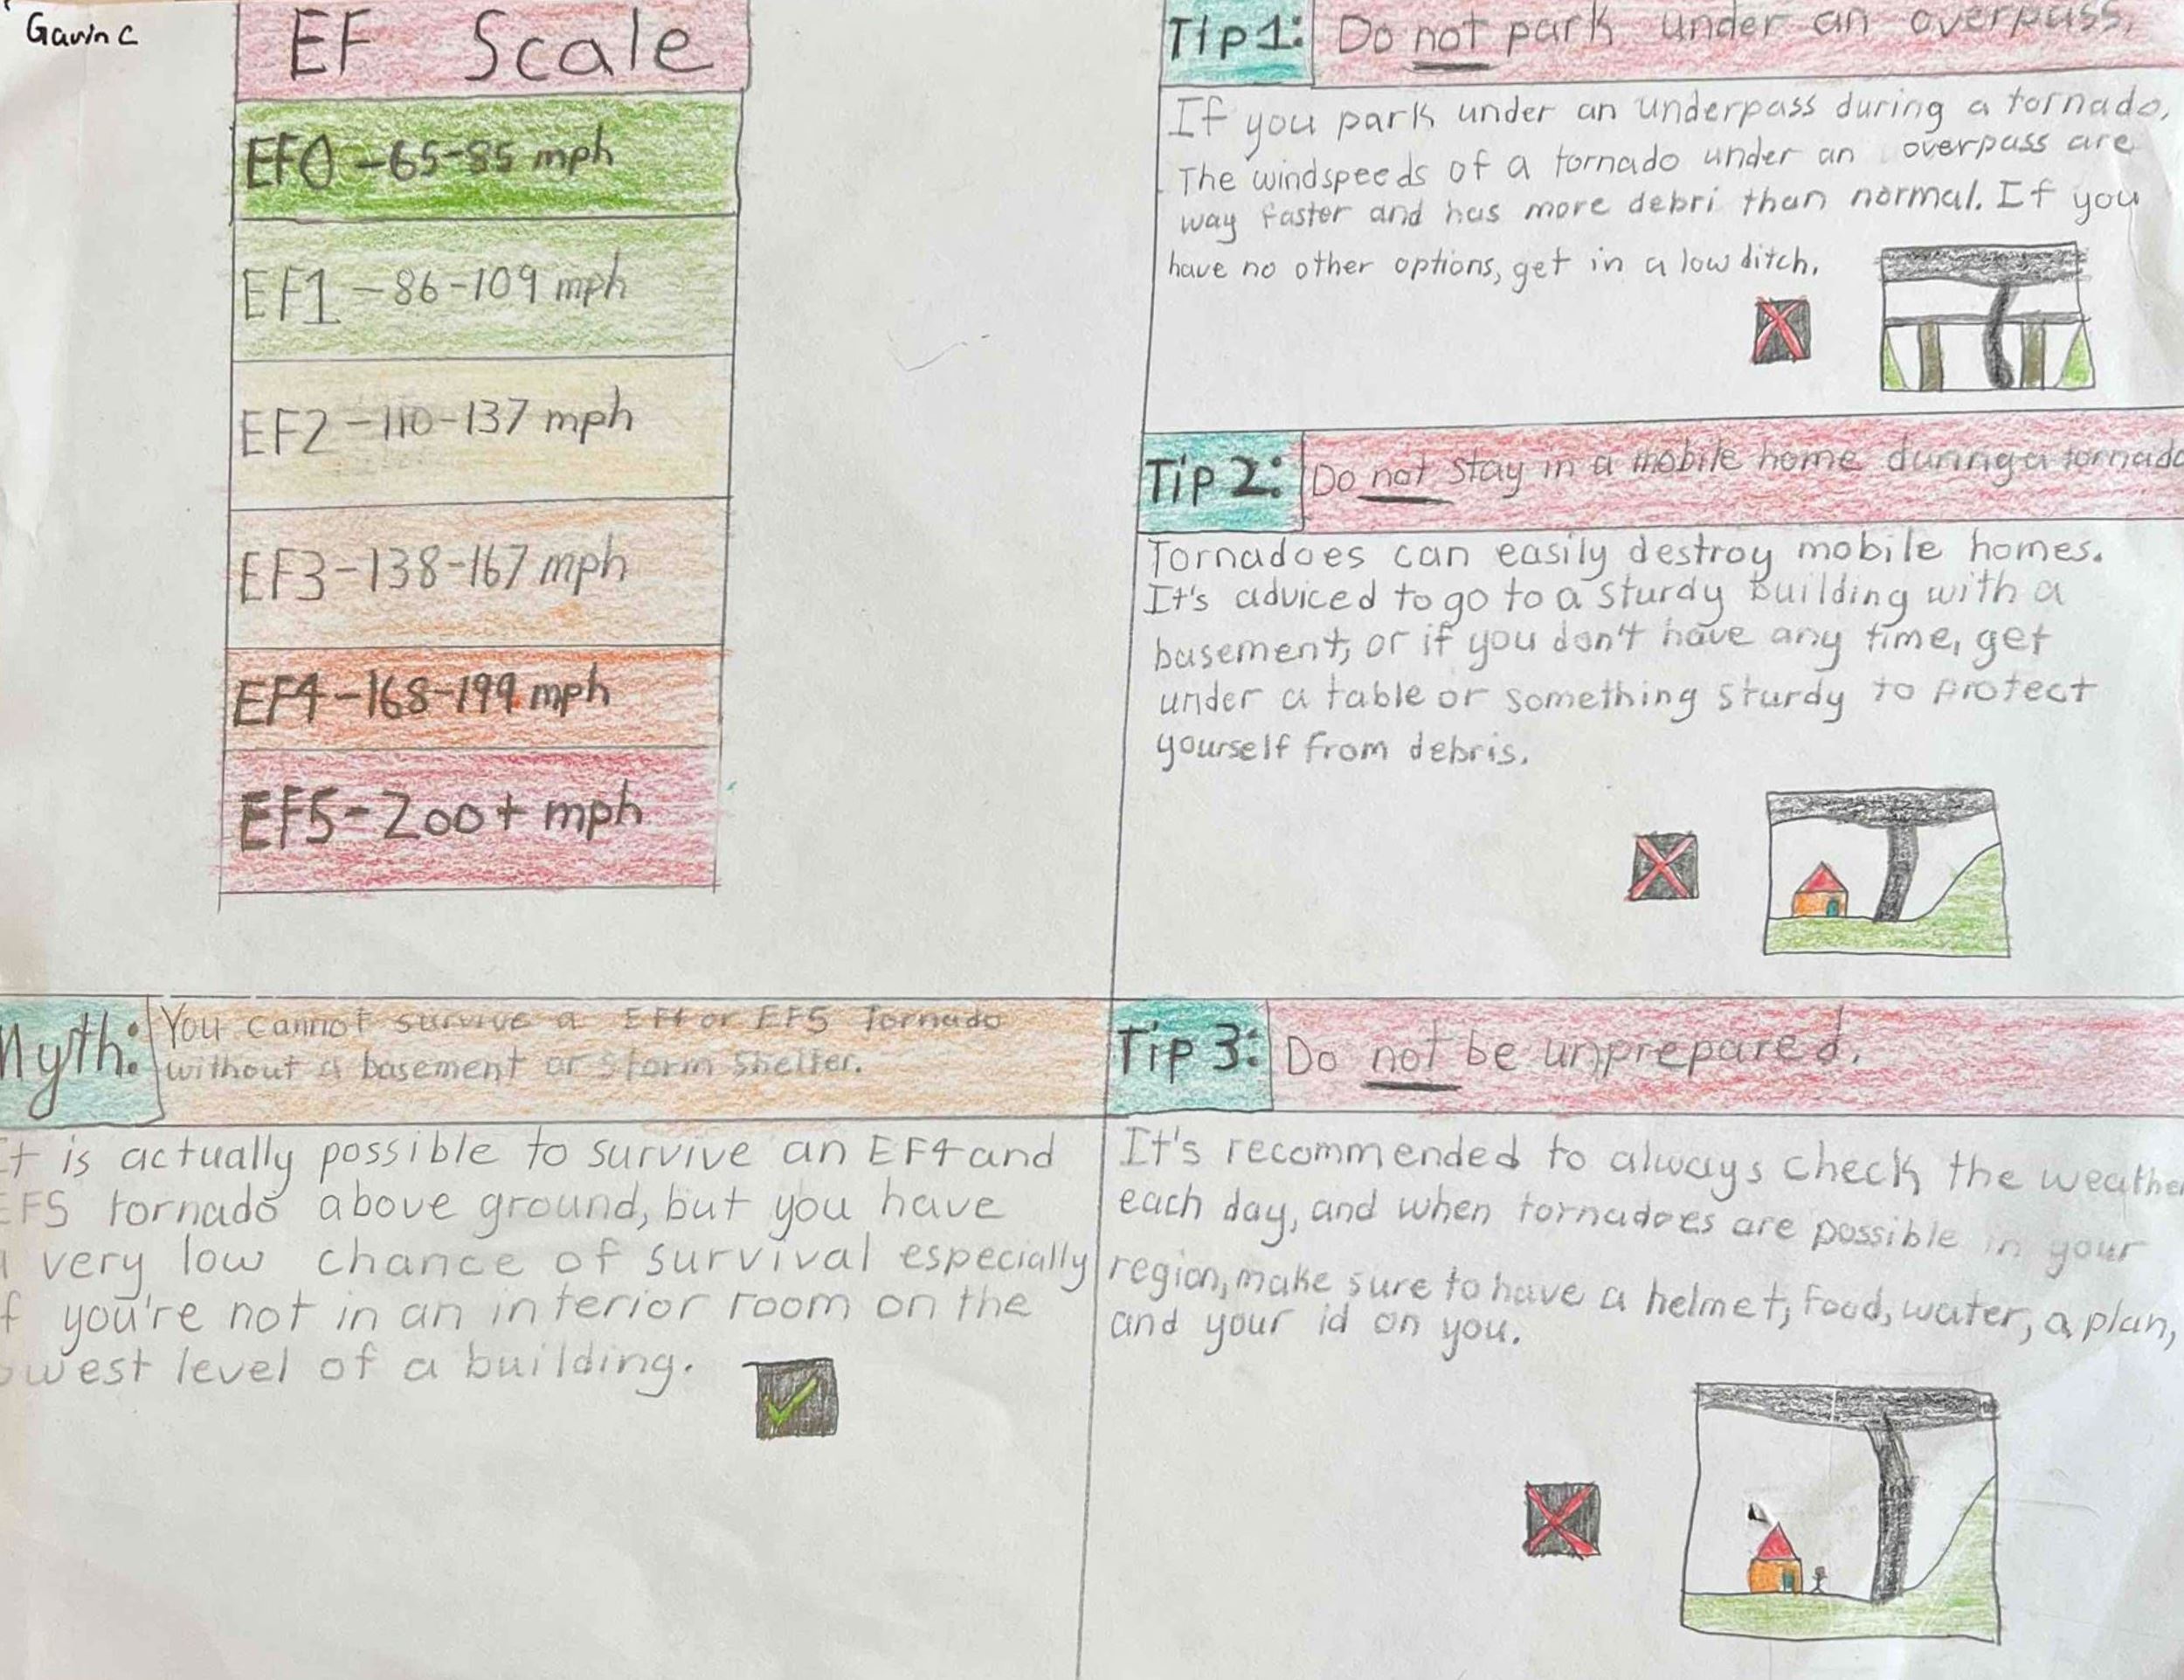 Gavin C
EF Scale
EF0-65-85 mph
EF1-86-109 mph
EF2-110-137 mph
EF3-138-167 mph
EF4-168-199 mph
EF5-200+ mph
Myth: You cannot survive a EF4 or EF5 Tornado
without a basement or Storm Shelter.
It is actually possible to survive an EF4 and
EF5 tornado above ground, but you have
a very low chance of survival especially
if you're not in an interior room on the
owest level of a building.
Tip1: Do not park under an overpass.
If you park under an underpass during a tornado,
The windspeeds of a tornado under an overpass are
way faster and has more debri than normal. If you
have no other options, get in a low ditch.
Tip 2: Do not stay in a mobile home during a tornado
Tornadoes can easily destroy mobile homes.
It's adviced to go to a sturdy building with a
basement, or if you don't have any time, get
under a table or something sturdy to protect
yourself from debris.
Tip 3: Do not be unprepared.
It's recommended to always check the weathe
each day, and when tornadoes are possible in your
region, make sure to have a helmet, food, water, a plan,
and your id on you.